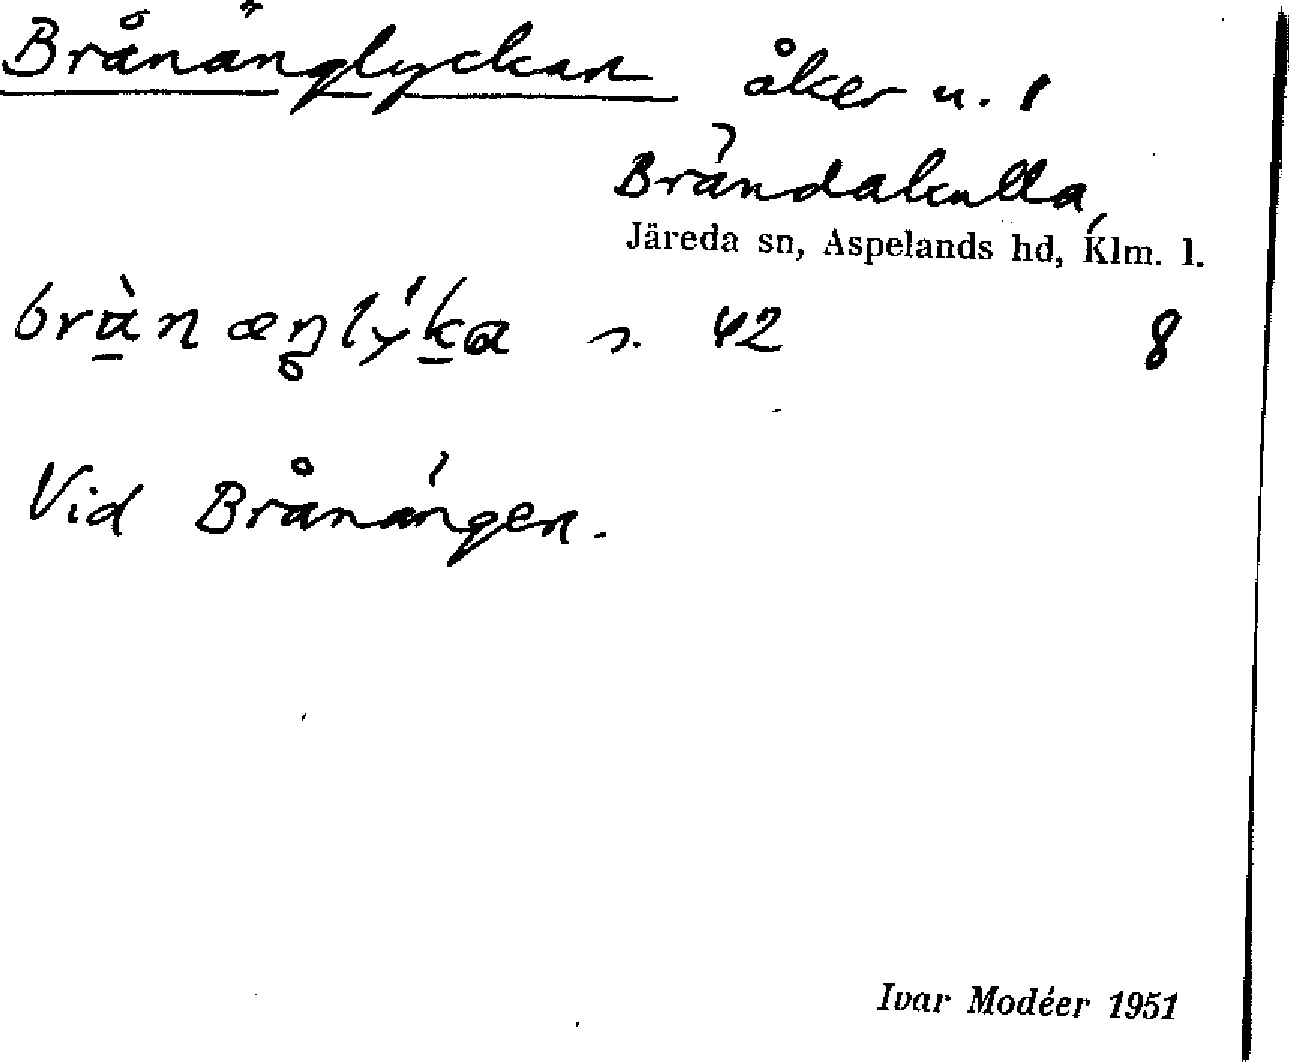 Brånänglyckan åker u. 1
Brändakulla,
Järeda sn, Aspelands hd, Klm. l.
brὰnæŋlýka s. 42 8
Vid Brånängen.
Ivar Modéer 1951